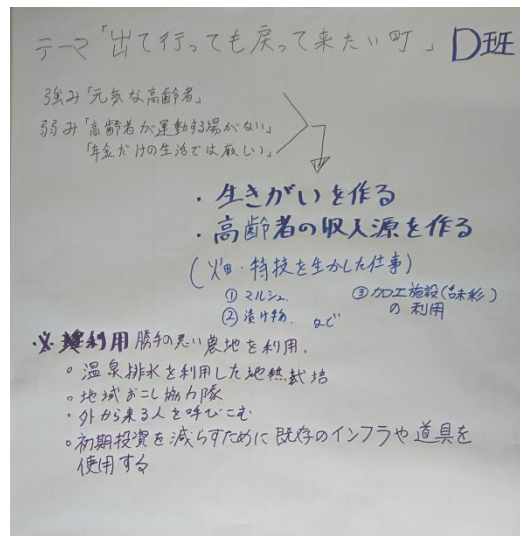 テーマ「出て行っても戻って来たい町」 D班
強み「元気な高齢者」
弱み「高齢者が運動する場がない」
「年金だけの生活では厳しい」
・生きがいを作る
・高齢者の収入源を作る
(畑・特技を生かした仕事)
① マルシェ
② 漬け物 など
③ 加工施設(味彩)
の利用
利用 勝手の悪い農地を利用、
○ 温泉排水を利用した地熱栽培
○ 地域おこし協力隊
・外から来る人を呼びこむ
○ 初期投資を減らすために既存のインフラや道具を
使用する